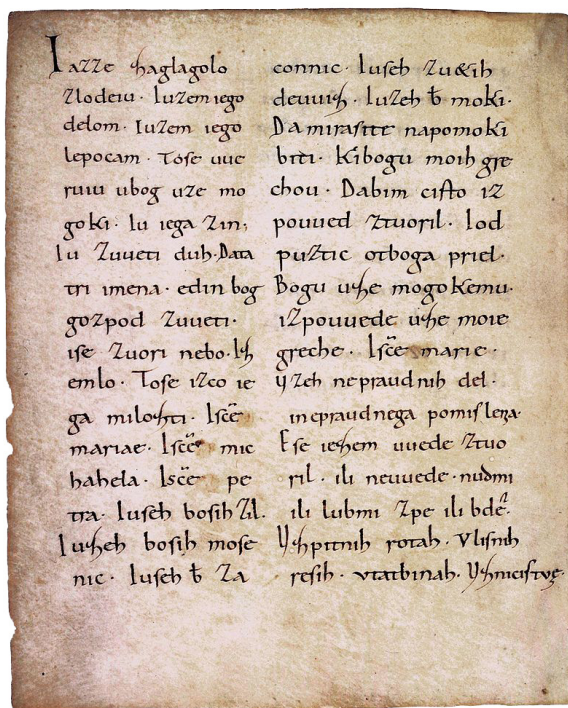 Iazze zaglagolo
zlodeiu. Iuzem iego
delom. Iuzem iego
lepocam. Tose uue
ruiu ubog uze mo
goki. Iu iega zin,
Iu zuueti duh. Data
tri imena. edin bog
gozpod zuueti.
ise zuori nebo. Iz
emlo. Tose izco ie
ga milozti. Isc̄e
mariae. Isc̄e mic
hahela. Isc̄e pe
tra. Iuseh bosih zil.
Iuzeh bosih mose
nic. Iuseh b̄ za
connic. Iuseh zu&ih
deuuiz. Iuzeh b̄ moki.
Da mirasite napomoki
btri. Kibogu moih gre
chou. Dabim cisto iz
pouued ztuoril. Iod
puztic otboga priel.
Bogu uze mogokemu.
izpouuede uze moie
greche. Isc̄e marie.
Vzeh nepraudnih del.
inepraudnega pomislena.
Ese iezem uuede ztuo
ril. ili neuuede. nudmi
ili lubmi zpe ili bdē.
Vzpitnih rotah. Vlisnih
resih. vtatbinah. Vznicistuę.